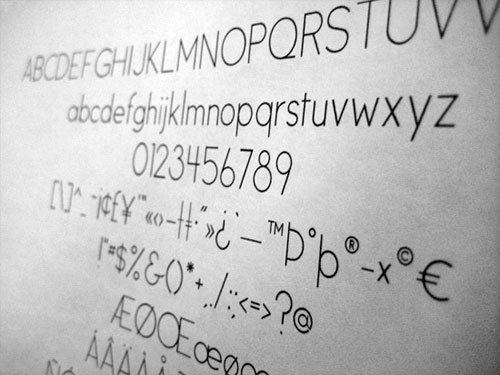 ABCDEFGHIJKLMNOPQRSTUV
abcdefghijklmnopqrstuvwxyz
0123456789
[\]^_¯¡¢£¥¨"«‹›–†‡·"»¿¸`—™Þ°þ®-x©€
!"#$%&()*+,./:;<=>?@
ÆØŒæøœ
ÁÂÃÄÀÅ